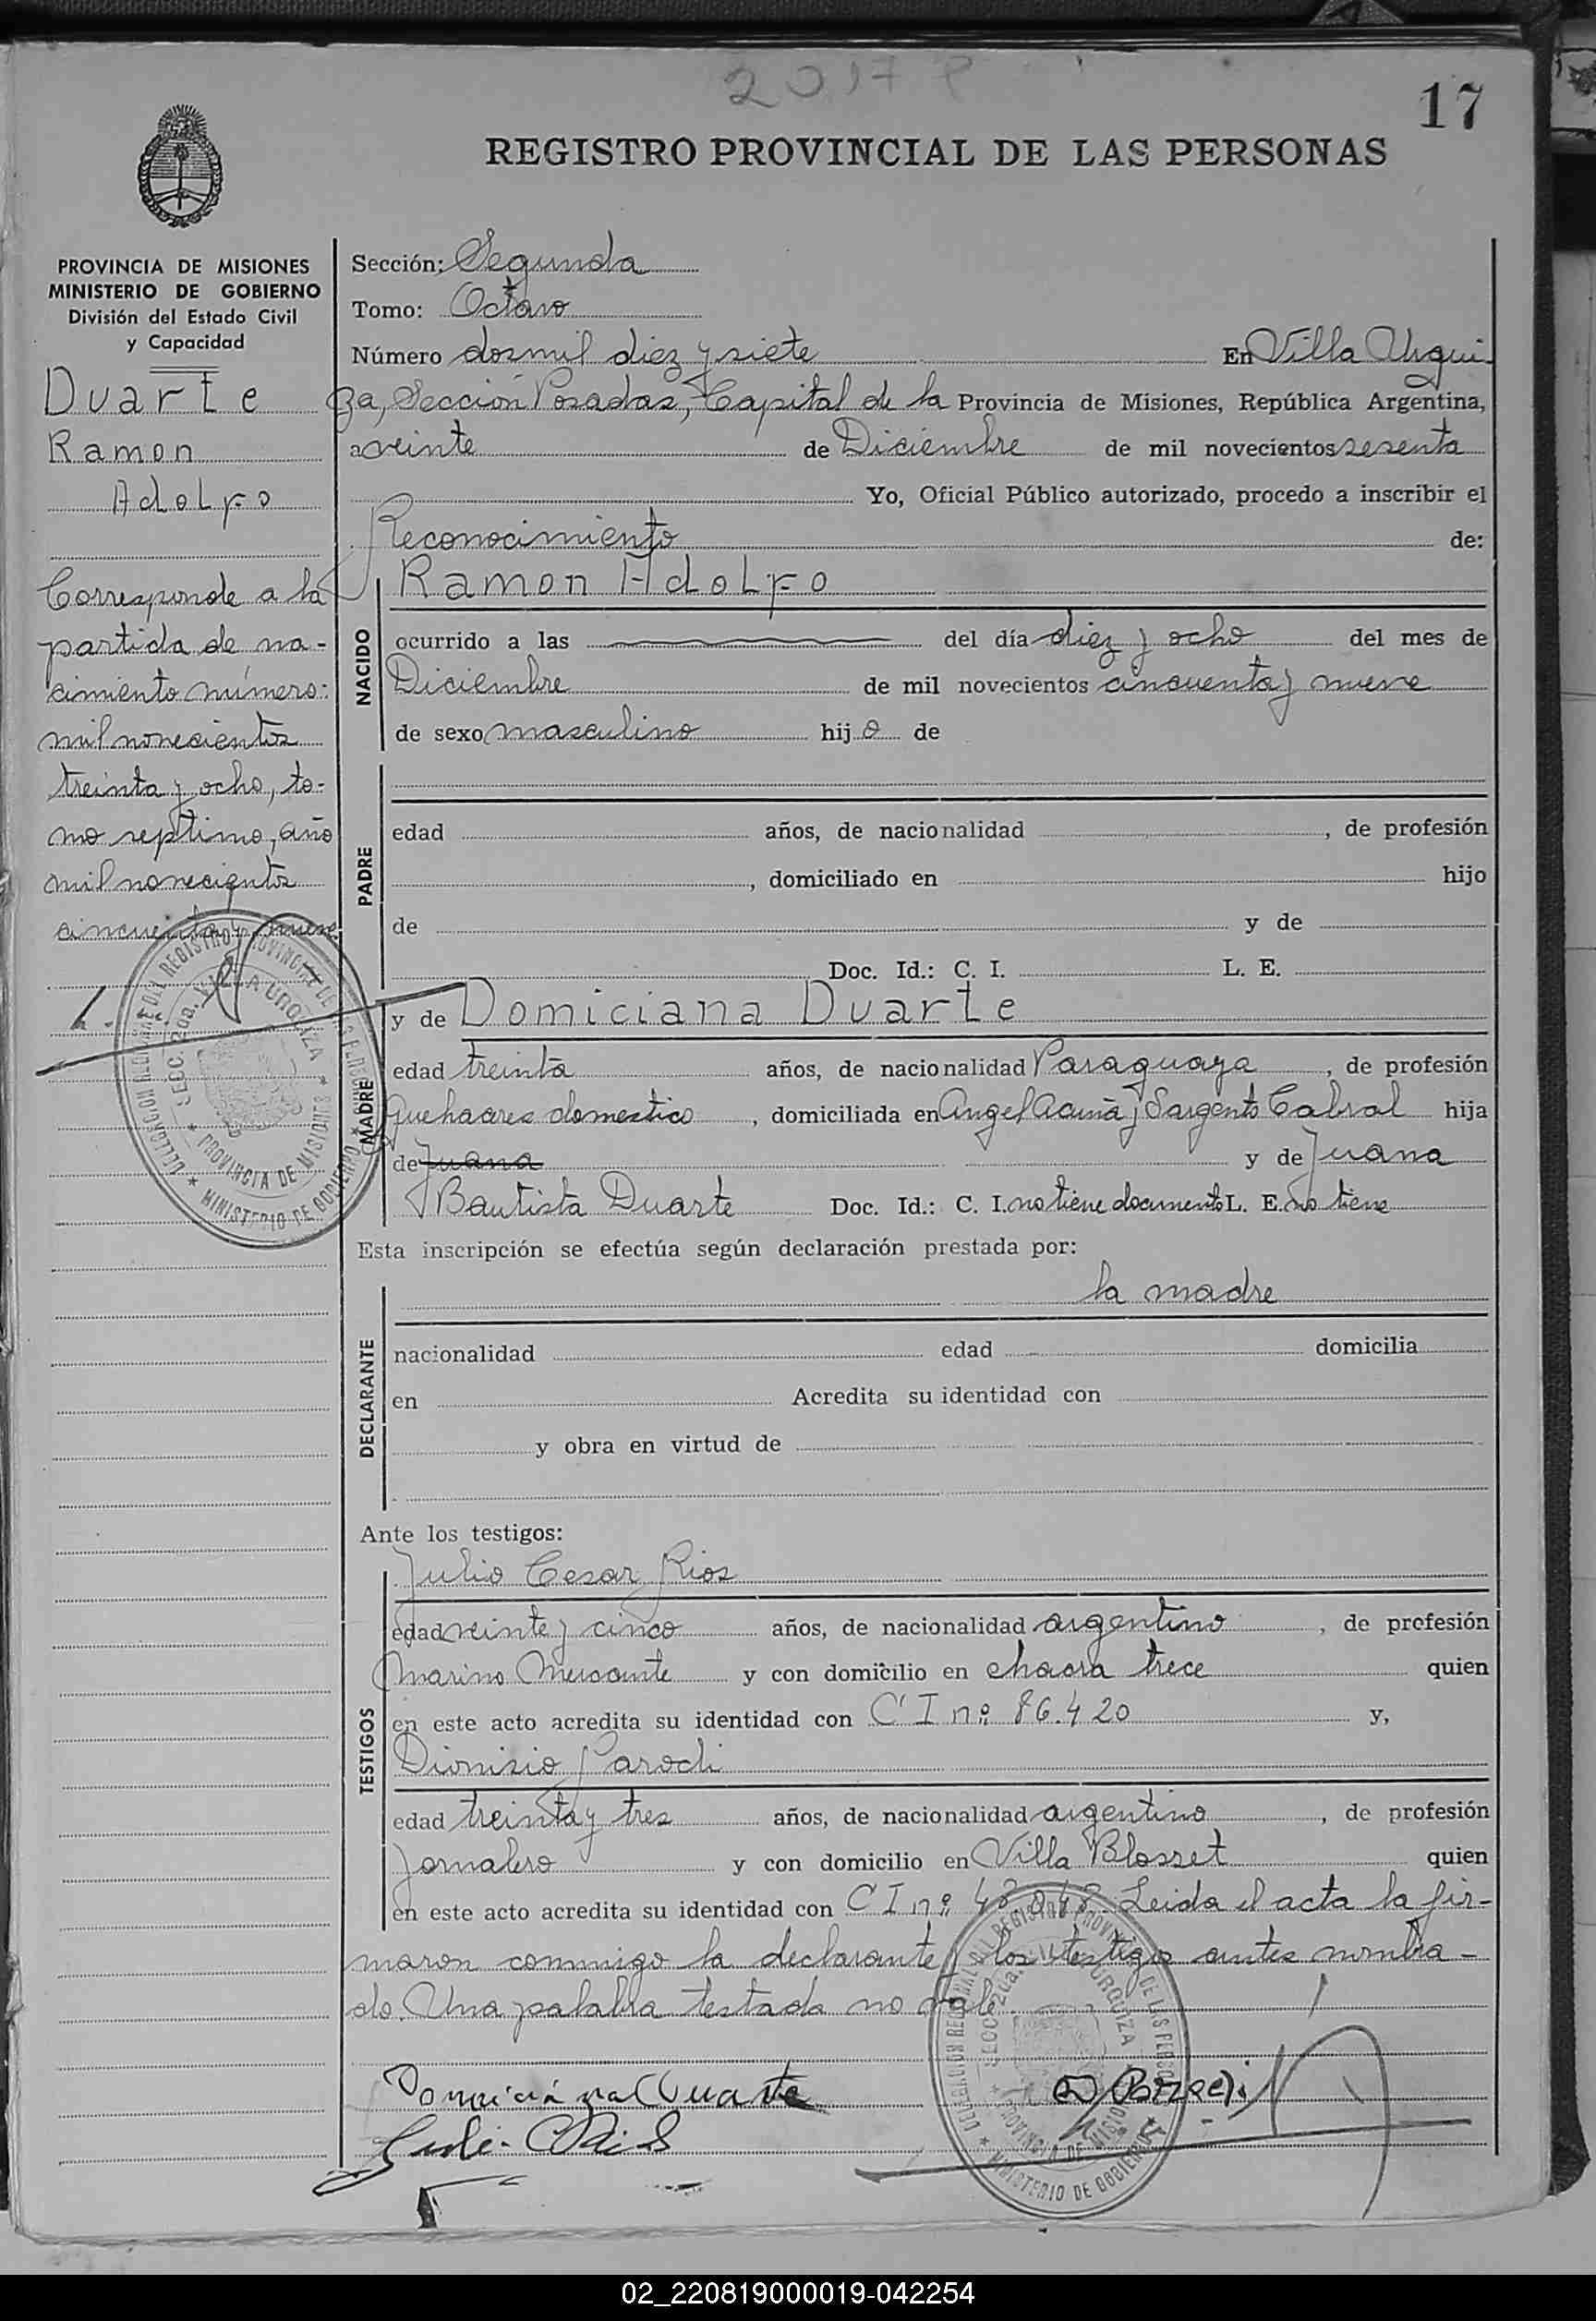 2017
17
REGISTRO PROVINCIAL DE LAS PERSONAS
PROVINCIA DE MISIONES
MINISTERIO DE GOBIERNO
División del Estado Civil
y Capacidad
Duarte
Ramon
Adolfo
Corresponde a la
partida de na-
cimiento número:
mil novecientos
treinta y ocho, to-
mo septimo, año
mil novecientos
cincuenta y nueve
DELEGACION REGIONAL DEL REGISTRO PROVINCIAL DE LAS PERSONAS
SECC. 2da. VILLA URQUIZA
* PROVINCIA DE MISIONES *
* MINISTERIO DE GOBIERNO *
Sección: Segunda
Tomo: Octavo
Número dosmil diez y siete En Villa Urqui-
za, Sección Posadas, Capital de la Provincia de Misiones, República Argentina,
a veinte de Diciembre de mil novecientos sesenta
Yo, Oficial Público autorizado, procedo a inscribir el
Reconocimiento de:
Ramon Adolfo
NACIDO
ocurrido a las del día diez y ocho del mes de
Diciembre de mil novecientos cincuenta y nueve
de sexo masculino hijo de
PADRE
edad años, de nacionalidad , de profesión
, domiciliado en hijo
de y de
Doc. Id.: C. I. L. E.
MADRE
y de Domiciana Duarte
edad treinta años, de nacionalidad Paraguaya , de profesión
quehaceres domestico , domiciliada en Angel Acuña y Sargento Cabral hija
de Juana y de Juana
Bautista Duarte Doc. Id.: C. I. no tiene documento L. E. no tiene
Esta inscripción se efectúa según declaración prestada por:
la madre
DECLARANTE
nacionalidad edad domicilia
en Acredita su identidad con
y obra en virtud de
Ante los testigos:
TESTIGOS
Julio Cesar Rios
edad veinte y cinco años, de nacionalidad argentino , de profesión
Marino Mercante y con domicilio en chacra trece quien
en este acto acredita su identidad con C I nº 86.420 y,
Dionisio Parodi
edad treinta y tres años, de nacionalidad argentino , de profesión
Jornalero y con domicilio en Villa Blosset quien
en este acto acredita su identidad con C I nº Leida el acta la fir-
maron conmigo la declarante y los testigos antes nombra-
do. Una palabra testada no vale.
Domiciana Duarte
D Parodi
DELEGACION REGIONAL DEL REGISTRO PROVINCIAL DE LAS PERSONAS
SECC. 2da. VILLA URQUIZA
* PROVINCIA DE MISIONES *
* MINISTERIO DE GOBIERNO *
02_220819000019-042254